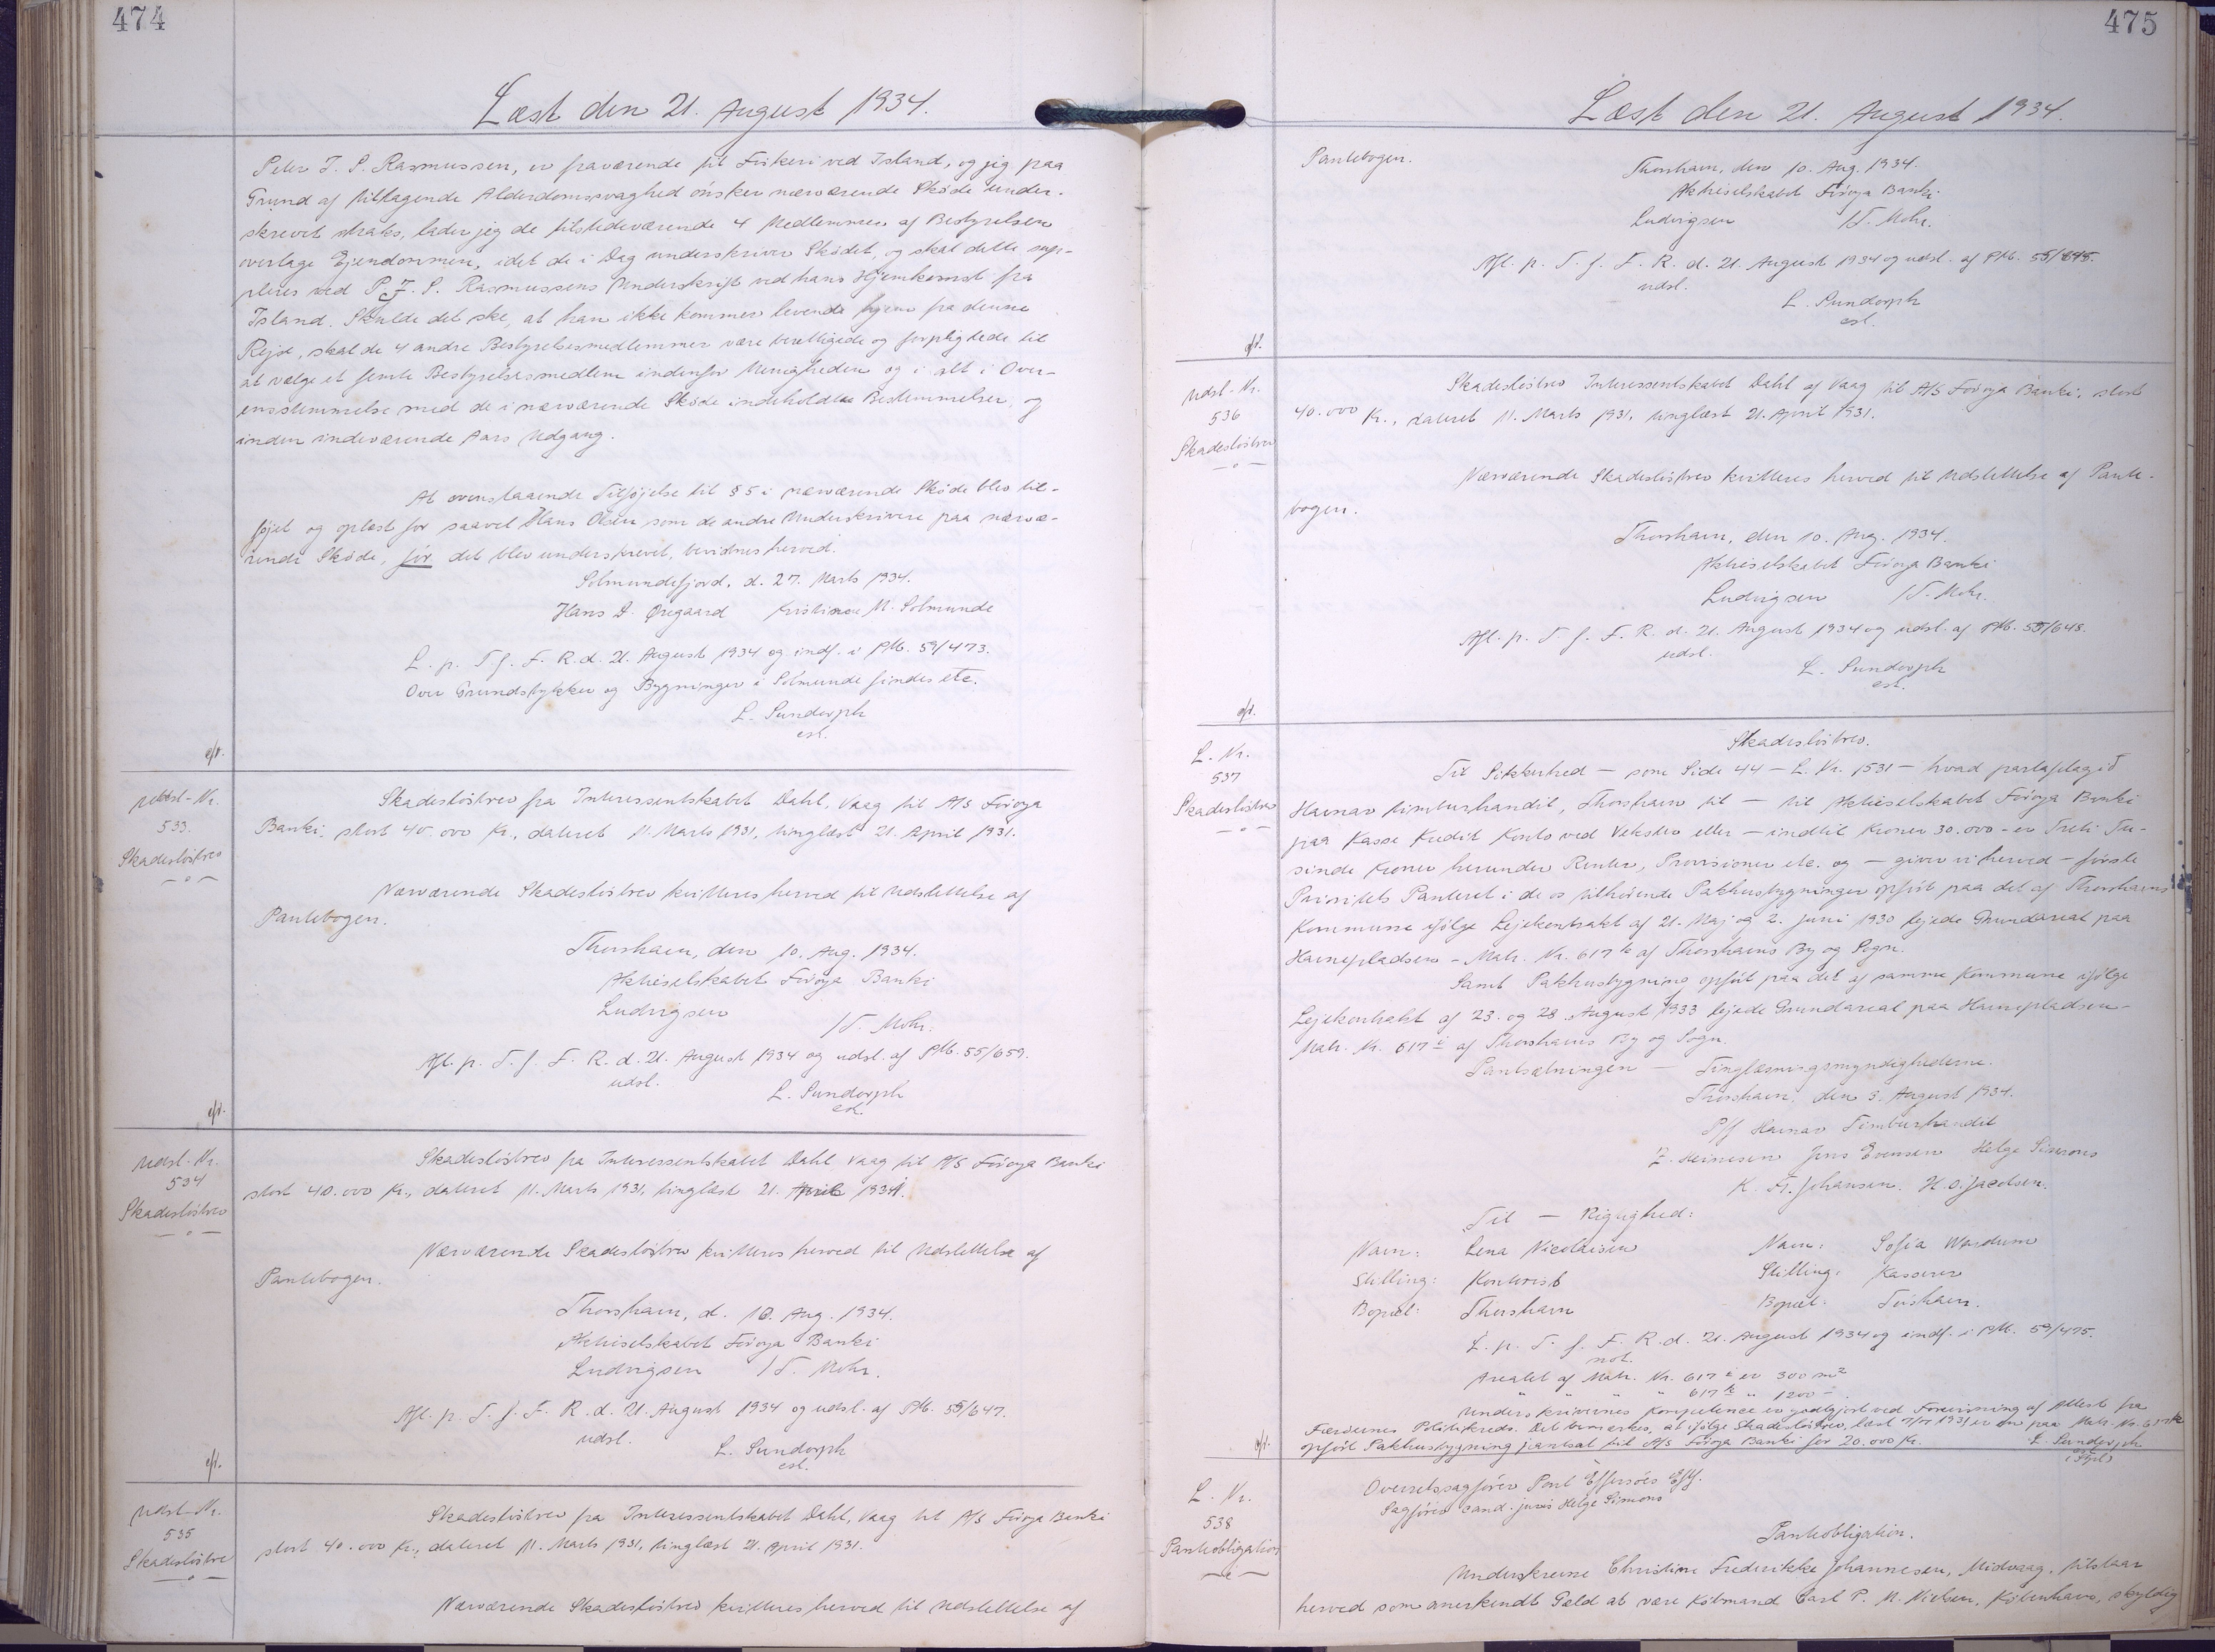 474
Læst den 21. August 1934.
Peter J. S. Rasmussen, er fraværende til Fiskeri ved Island, og jeg paa
Grund af tiltagende Alderdomssvaghed ønsker nærværende Skøde under-
skrevet straks, lader jeg de tilstedeværende 4 Medlemmer af Bestyrelsen
overtage Ejendommen, idet de i Dag underskriver Skødet, og skal dette sup-
pleres ved P. J. S. Rasmussens Underskrift ved hans Hjemkomst fra
Island. Skulde det ske, at han ikke kommer levende hjem fra denne
Rejse, skal de 4 andre Bestyrelsesmedlemmer være berettigede og forpligtede til
at vælge et femte Bestyrelsesmedlem indenfor Menigheden og i alt i Over-
ensstemmelse med de i nærværende Skøde indeholdte Bestemmelser, og
inden indeværende Aars Udgang.
At ovenstaaende Tilføjelse til § 5 i nærværende Skøde blev til-
føjet og oplæst for saavel Hans Olsen som de andre Underskrivere paa nærvæ-
rende Skøde, før det blev underskrevet, bevidnes herved.
Solmundefjord, d. 27. Marts 1934.
Hans D. Øregaard Kristinn M. Solmunde
L. p. T. f. F. R. d. 21. August 1934 og indf. i PM. 59/473.
Over Grundstykker og Bygninger i Solmunde findes etc.
L. Sundorph
cst.
Udsl-Nr.
533.
Skadesløsbrev
Skadesløsbrev fra Interessentskabet Dahl, Vaag til A/S Føroya
Banki, stort 40.000 Kr., dateret 11. Marts 1931, tinglæst 21. April 1931.
Nærværende Skadesløsbrev kvitteres herved til Udslettelse af
Pantebogen.
Thorshavn, den 10. Aug. 1934.
Aktieselskabet Føroya Banki
Ludvigsen /T. Mohr.
Afl. p. T. f. F. R. d. 21. August 1934 og udsl. af PM. 55/659.
udsl.
L. Sundorph
cst.
Udsl-Nr.
534
Skadesløsbrev
Skadesløsbrev fra Interessentskabet Dahl Vaag til A/S Føroya Banki
stort 40.000 Kr., dateret 11. Marts 1931, tinglæst 21. April 1931.
Nærværende Skadesløsbrev kvitteres herved til Udslettelse af
Pantebogen.
Thorshavn, d. 10. Aug. 1934.
Aktieselskabet Føroya Banki
Ludvigsen /T. Mohr.
Afl. p. T. f. F. R. d. 21. August 1934 og udsl. af PM. 55/647.
udsl.
L. Sundorph
cst.
Udsl-Nr.
535
Skadesløsbrev
Skadesløsbrev fra Interessentskabet Dahl, Vaag til A/S Føroya Banki
stort 40.000 Kr., dateret 11. Marts 1931, tinglæst 21. April 1931.
Nærværende Skadesløsbrev kvitteres herved til Udslettelse af
475
Læst den 21. August 1934.
Pantebogen.
Thorshavn, den 10. Aug. 1934.
Aktieselskabet Føroya Banki
Ludvigsen /T. Mohr.
Afl. p. T. f. F. R. d. 21. August 1934 og udsl. af PM. 55/645.
udsl.
L. Sundorph
cst.
Udsl-Nr.
536
Skadesløsbrev
Skadesløsbrev Interessentskabet Dahl af Vaag til A/S Føroya Banki, stort
40.000 Kr., dateret 11. Marts 1931, tinglæst 21. April 1931.
Nærværende Skadesløsbrev kvitteres herved til Udslettelse af Pante-
bogen.
Thorshavn, den 10. Aug. 1934.
Aktieselskabet Føroya Banki
Ludvigsen /T. Mohr.
Afl. p. T. f. F. R. d. 21. August 1934 og udsl. af PM. 55/643.
udsl.
L. Sundorph
cst.
L. Nr.
537
Skadesløsbrev
Skadesløsbrev.
Til Sikkerhed — som Side 44 — L. Nr. 1531 — hvad partafelagið
Havnar timburhandil, Thorshavn til — til Aktieselskabet Føroya Banki
paa Kasse Kredit Konto ved Veksler eller — indtil Kroner 30.000 - er Treti Tu-
sinde Kroner herunder Renter, Provisioner etc. og — giver vi herved — første
Prioritets Panteret i de os tilhørende Pakhusbygninger opført paa det af Thorshavns
Kommune ifølge Lejekontrakt af 21. Maj og 2. Juni 1930 lejede Grundareal paa
Havnepladsen - Matr. Nr. 617 k af Thorshavns By og Sogn.
Samt Pakhusbygning opført paa det af samme Kommune ifølge
Lejekontrakt af 23. og 28. August 1933 lejede Grundareal paa Havnepladsen -
Matr. Nr. 617 i af Thorshavns By og Sogn.
Pantsætningen — Tinglæsningsmyndighederne.
Thorshavn, den 3. August 1934.
P/f Havnar Timburhandil
Z. Heinesen Jens Evensen Helge Simons
K. Fr. Johansen. H. O. Jacobsen.
Til — Rigtighed:
Navn: Lena Nicolaisen Navn: Sofia Wardum
Stilling: Kontorist Stilling: Kasserer
Bopæl: Thorshavn Bopæl: Tórshavn.
L. p. T. f. F. R. d. 21. August 1934 og indf. i PM. 59/475.
not.
Arealet af Matr. Nr. 617 i er 300 m²
" " " " 617 k " 1200 -
Underskrivernes Kompetence er godtgjort ved Forevisning af Attest fra
Færøernes Politikreds. Det bemærkes, at ifølge Skadesløsbrev, læst 1931 er en paa Matr. Nr. 617 k
opført Pakhusbygning pantsat til A/S Føroya Banki for 20.000 Kr. L. Sundorph
cst.
L. Nr.
538
Pantobligation
Overretssagfører Poul Effersöes Eftf.
Sagfører cand. juris Helge Simons
Pantobligation.
Underskrevne Christine Frederikke Johannesen, Midvaag, tilstaar
herved som anerkendt Gæld at være Købmand Carl P. M. Nielsen, København, skyldig